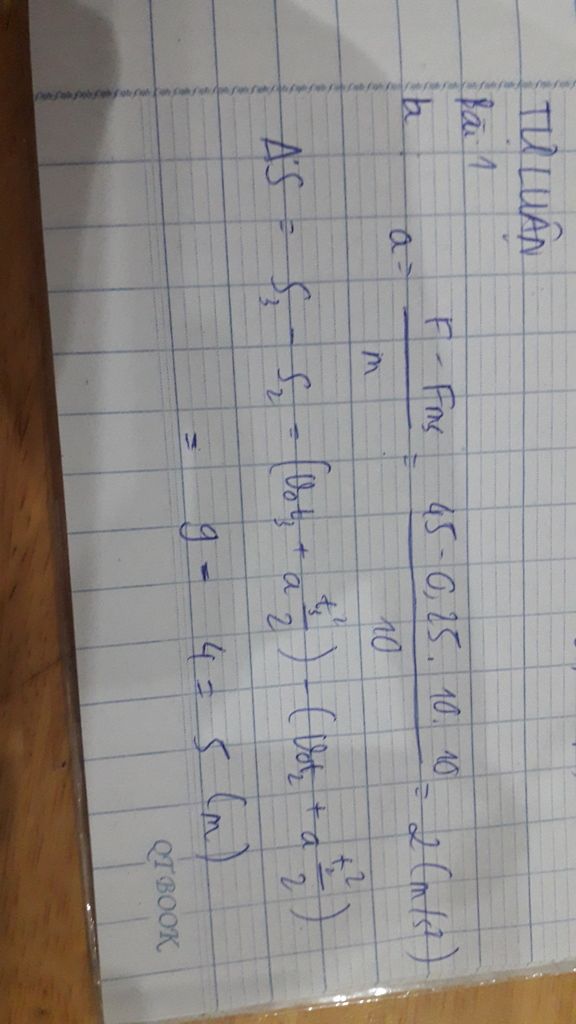 TỰ LUẬN
Bài 1
a = F - Fms / m = 45 - 0,25 . 10 . 10 / 10 = 2 (m/s²)
ΔS = S₃ - S₂ = (V₀t₃ + a t₃²/2) - (V₀t₂ + a t₂²/2)
= 9 - 4 = 5 (m)
QTBOOK